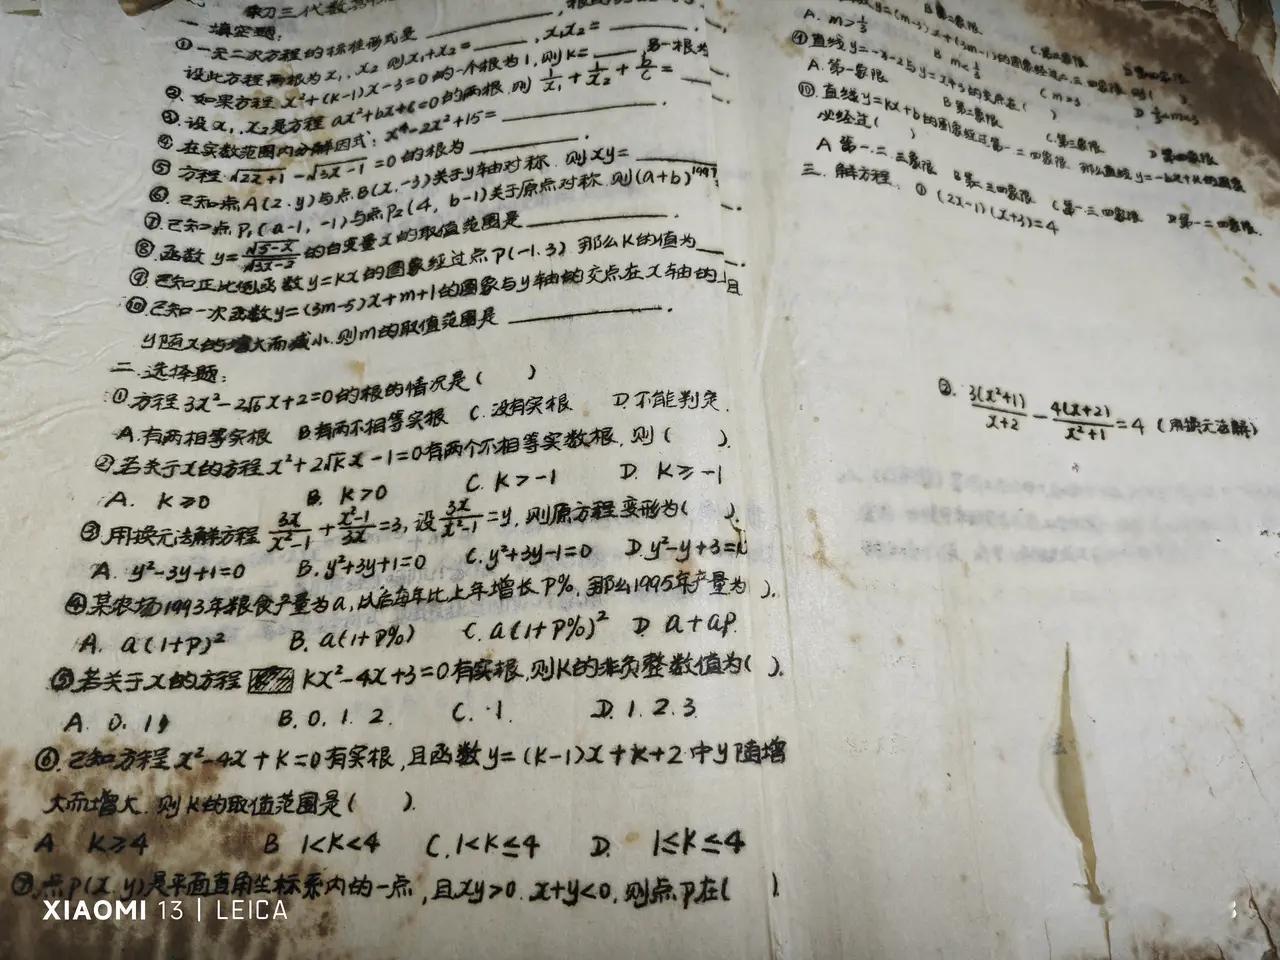 初三代数
一 填空题:
①一元二次方程的标准形式是________,
设此方程两根为x₁、x₂ 则x₁+x₂=____, x₁x₂=____.
②. 如果方程 x²+(k-1)x-3=0的一个根为1,则k=____,另一根为
③. 设x₁、x₂是方程 ax²+bx+c=0的两根,则 1/x₁+1/x₂+b/c=____
④ 在实数范围内分解因式: x⁴-2x²+15=________.
⑤ 方程 √(2x+1) -√(3x-1) =0的根为________.
⑥. 已知点A(2.y)与点B(x,-3)关于y轴对称. 则xy=________
⑦. 已知点P₁(a-1, -1)与点P₂(4, b-1)关于原点对称. 则(a+b)¹⁹⁹⁷=
⑧. 函数 y=√(5-x)/√(3x-2) 的自变量x的取值范围是________.
⑨. 已知正比例函数y=kx的图象经过点P(-1.3). 那么K的值为____.
⑩. 已知一次函数y=(3m-5)x+m+1的图象与y轴的交点在x轴的上且
y随x的增大而减小.则m的取值范围是________.
二.选择题:
①.方程3x²-2√6x+2=0的根的情况是( )
A.有两相等实根 B.有两不相等实根 C.没有实根 D.不能判定.
②若关于x的方程x²+2√k x-1=0有两个不相等实数根, 则( ).
A. K≥0 B. K>0 C. K>-1 D. K≥-1
③.用换元法解方程 3x/(x²-1)+(x²-1)/3x=3, 设3x/(x²-1)=y, 则原方程变形为( ).
A. y²-3y+1=0 B. y²+3y+1=0 C. y²+3y-1=0 D. y²-y+3=
④某农场1993年粮食产量为a,以后每年比上年增长P%,那么1995年产量为( ).
A. a(1+P)² B. a(1+P%) C. a(1+P%)² D. a+aP.
⑤若关于x的方程 kx²-4x+3=0有实根,则K的非负整数值为( ).
A. 0. 1 B. 0. 1. 2. C. 1. D. 1. 2. 3.
⑥.已知方程x²-4x+k=0有实根, 且函数y=(k-1)x+k+2.中y随增
大而增大. 则K的取值范围是( ).
A K≥4 B 1<K<4 C. 1<K≤4 D. 1≤K≤4
⑦.点P(x.y)是平面直角坐标系内的一点, 且xy>0. x+y<0, 则点P在( )
y=(m-3)x+(3m-1)的图象经过一.三.四象限. 则( ).
A. m>1/3 B m<1/3 C m>3
⑨直线y=-x-2与y=x+3的交点在( )
A. 第一象限 B 第二象限 C.第三象限 D.第四象限
⑩.直线y=kx+b的图象经过第一.二.四象限. 那么直线y=-bx+k的图象
必经过( )
A 第一.二.三象限 B 第二.三.四象限 C 第一.三.四象限 D 第一.二.四象限.
三. 解方程. ① (2x-1)(x+3)=4
②. 3(x²+1)/(x+2) - 4(x+2)/(x²+1) =4 (用换元法解)
XIAOMI 13 | LEICA